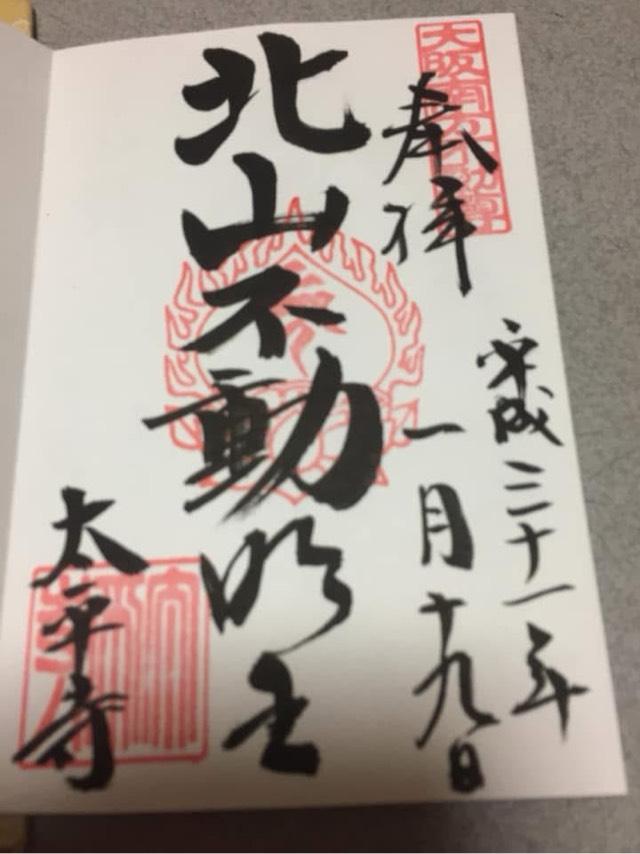 奉拝
平成三十一年
一月十九日
北山不動明王
太平寺